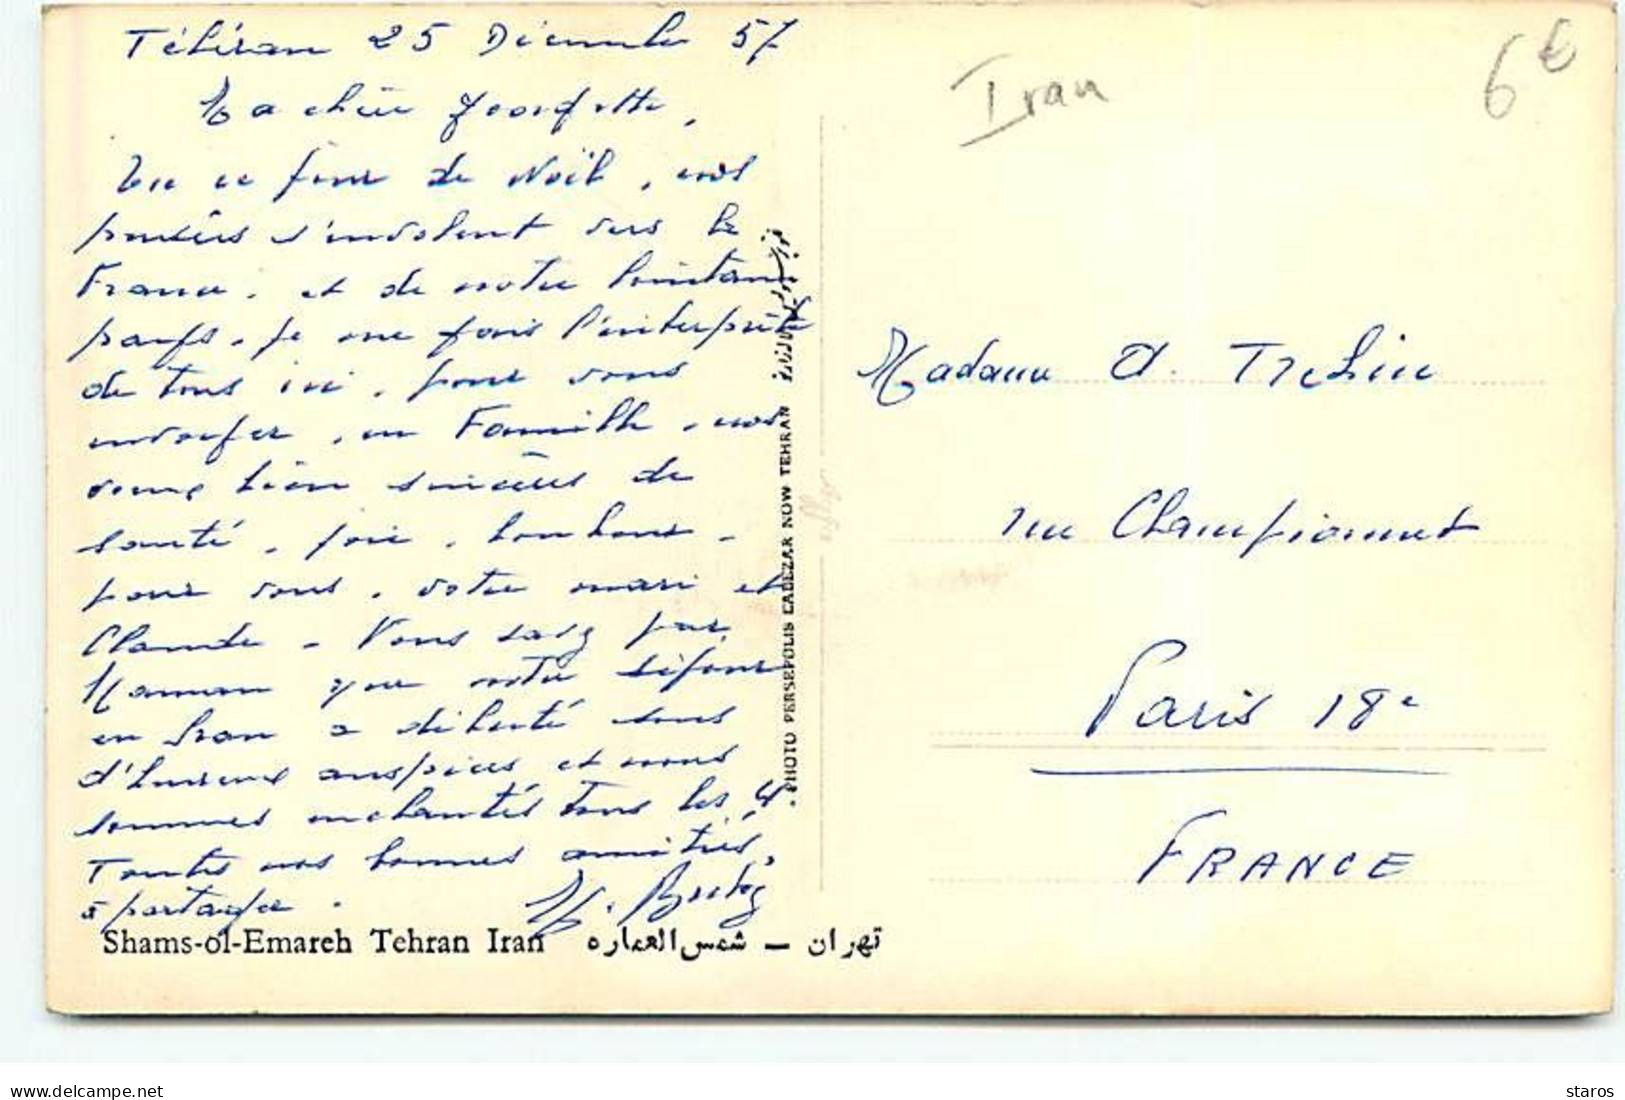 Téhéran 25 Décembre 57
Ma chère Georgette,
En ce jour de Noël, nos
pensées s'envolent vers la
France, et de notre lointain
pays, je me fais l'interprète
de tous ici, pour vous
envoyer, en Famille, nos
voeux bien sincères de
santé, joie, bonheur,
pour vous, votre mari et
Claude - Vous savez par
Maman que notre séjour
en Iran a débuté sous
d'heureux auspices et nous
sommes enchantés tous les 4
Toutes nos bonnes amitiés,
à partager.
Shams-ol-Emareh Tehran Iran تهران — شمس العماره
PHOTO PERSEPOLIS LALEZAR NOW TEHRAN
Iran
6€
Madame A.
rue Championnet
Paris 18e
FRANCE
delcampe.net
staros